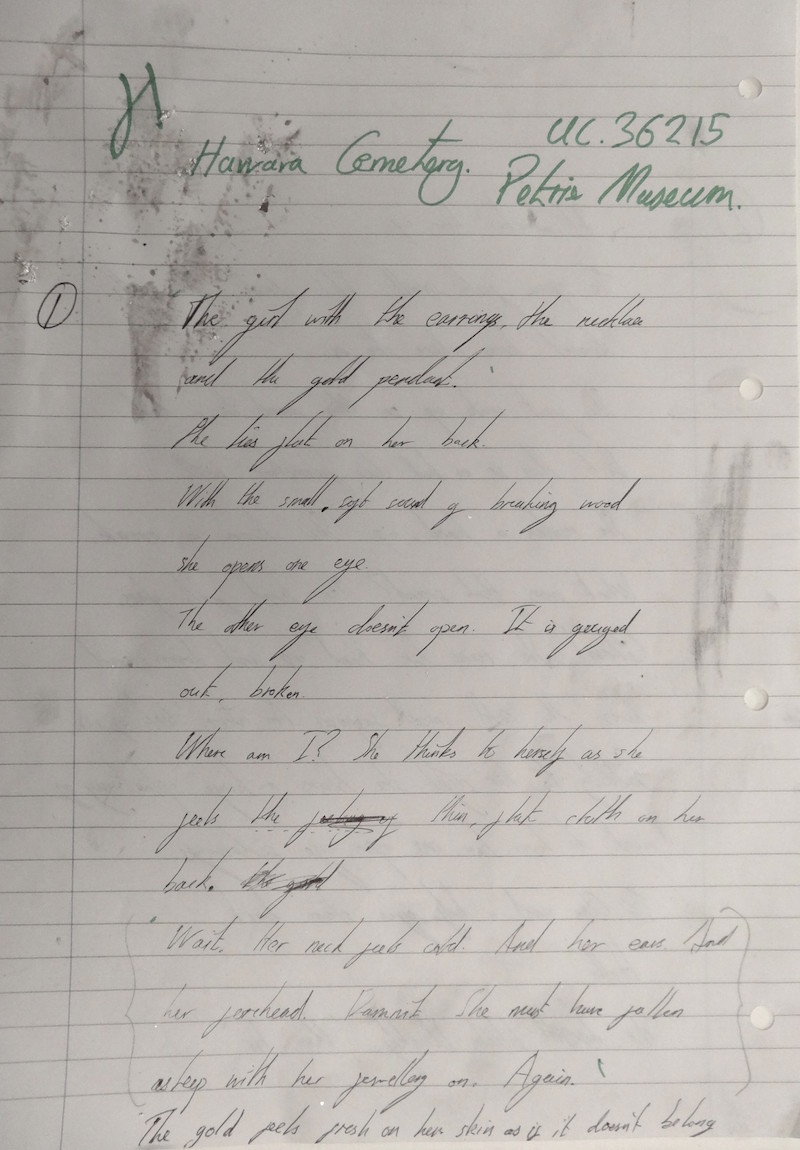 H
UC.36215
Hawara Cemetery.
Petrie Museum.
1
The girl with the earrings, the necklace
and the gold pendant.
She lies flat on her back.
With the small, soft sound of breaking wood
she opens one eye.
The other eye doesn't open. It is gouged
out, broken.
Where am I? She thinks to herself as she
feels the feeling of thin, flat cloth on her
back. the gold
Wait. Her neck feels cold. And her ears. And
her forehead. Damnit. She must have fallen
asleep with her jewellery on. Again.
The gold feels fresh on her skin as if it doesn't belong